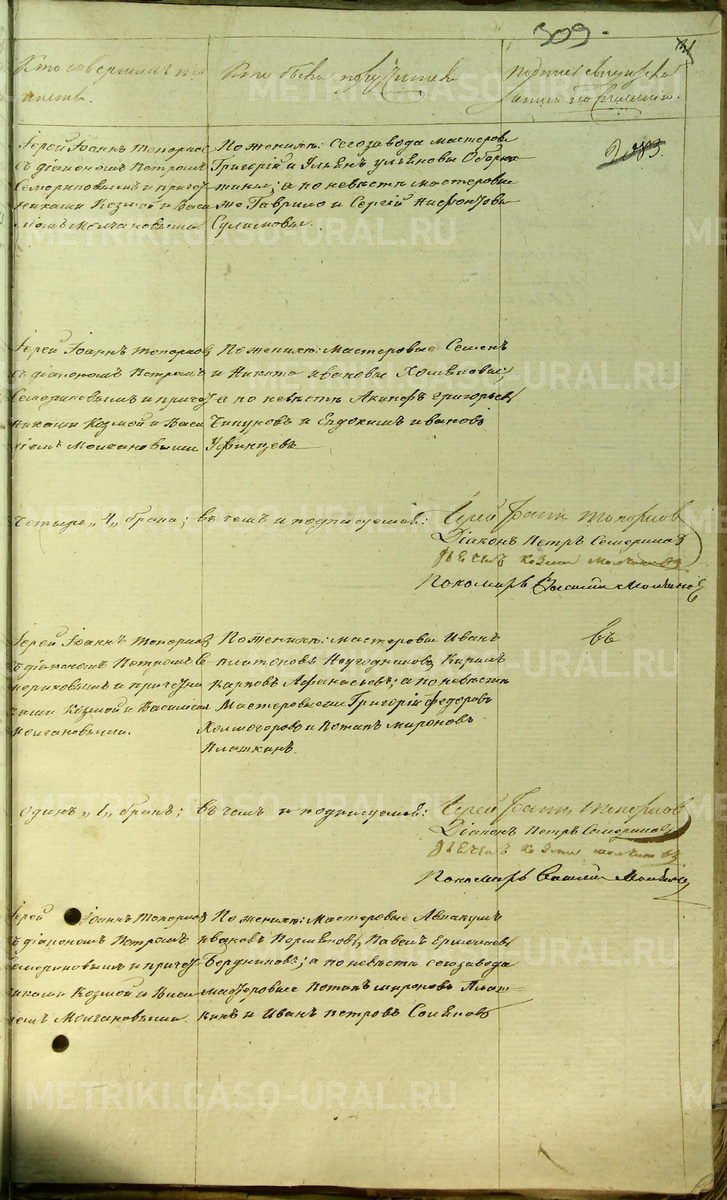 309.
Кто совершалъ та
инства.
Кто были поручители
Подпись свидѣтелей
записи по желанію.
Іерей Іоаннъ Топорков
съ діакономъ Петромъ
Семериковымъ и причет
никами Козмой и Васи
ліемъ Молчановыми
По женихѣ: сегозавода мастеровы
Григорій и Ульянъ Ульяновы
тины; а по невѣстѣ мастеровы
же Гаврило и Сергій Нифонтовы
Сулимовы.
Іерей Іоаннъ Топорков
съ діакономъ Петромъ
Семериковымъ и причет
никами Козмой и Васи
ліемъ Молчановыми
По женихѣ: Мастеровые Семенъ
и Никита Ивановы Хомяковы;
а по невѣстѣ Акинфъ Григорьев
Чипуновъ и Евдокимъ Ивановъ
Уфинцевъ
Четыре „4„ брака; въ чемъ и подписуемся:
Іерей Іоаннъ Топорков
Діаконъ Петръ Семериков
Дьячекъ Козма Молчановъ
Пономарь Василий Молчанов
Іерей Іоаннъ Топорков
съ діакономъ Петромъ Се
мериковымъ и причетни
ками Козмой и Василіем
Молчановыми.
По женихѣ: мастеровые Иванъ
Платоновъ Неугодниковъ, Кирилъ
Карповъ Афанасьевъ; а по невѣстѣ
Мастеровые Григорій Федоровъ
Холмогоровъ и Потапъ Мироновъ
Платкинъ.
въ
Одинъ „1„ бракъ; въ чемъ и подписуемся:
Іерей Іоаннъ Топорков
Діаконъ Петръ Семериков
Дьячекъ Козма Молчановъ
Пономарь Василий Молчанов
Іерей Іоаннъ Топорков
съ діакономъ Петромъ
Семериковымъ и причет
никами Козмой и Васи
ліемъ Молчановыми.
По женихѣ: Мастеровые Аввакумъ
Ивановъ Поршяновъ, Павелъ Ермолаев
Бердниковъ; а по невѣстѣ сегозавода
мастеровые Потапъ Мироновъ Плат-
кинъ и Иванъ Петровъ Соляновъ
METRIKI.GASO-URAL.RU